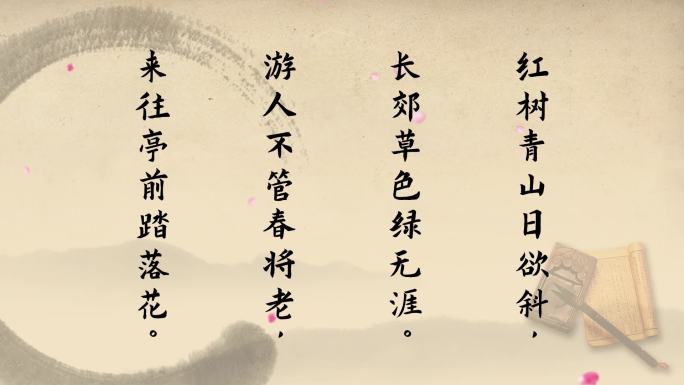 红树青山日欲斜，
长郊草色绿无涯。
游人不管春将老，
来往亭前踏落花。